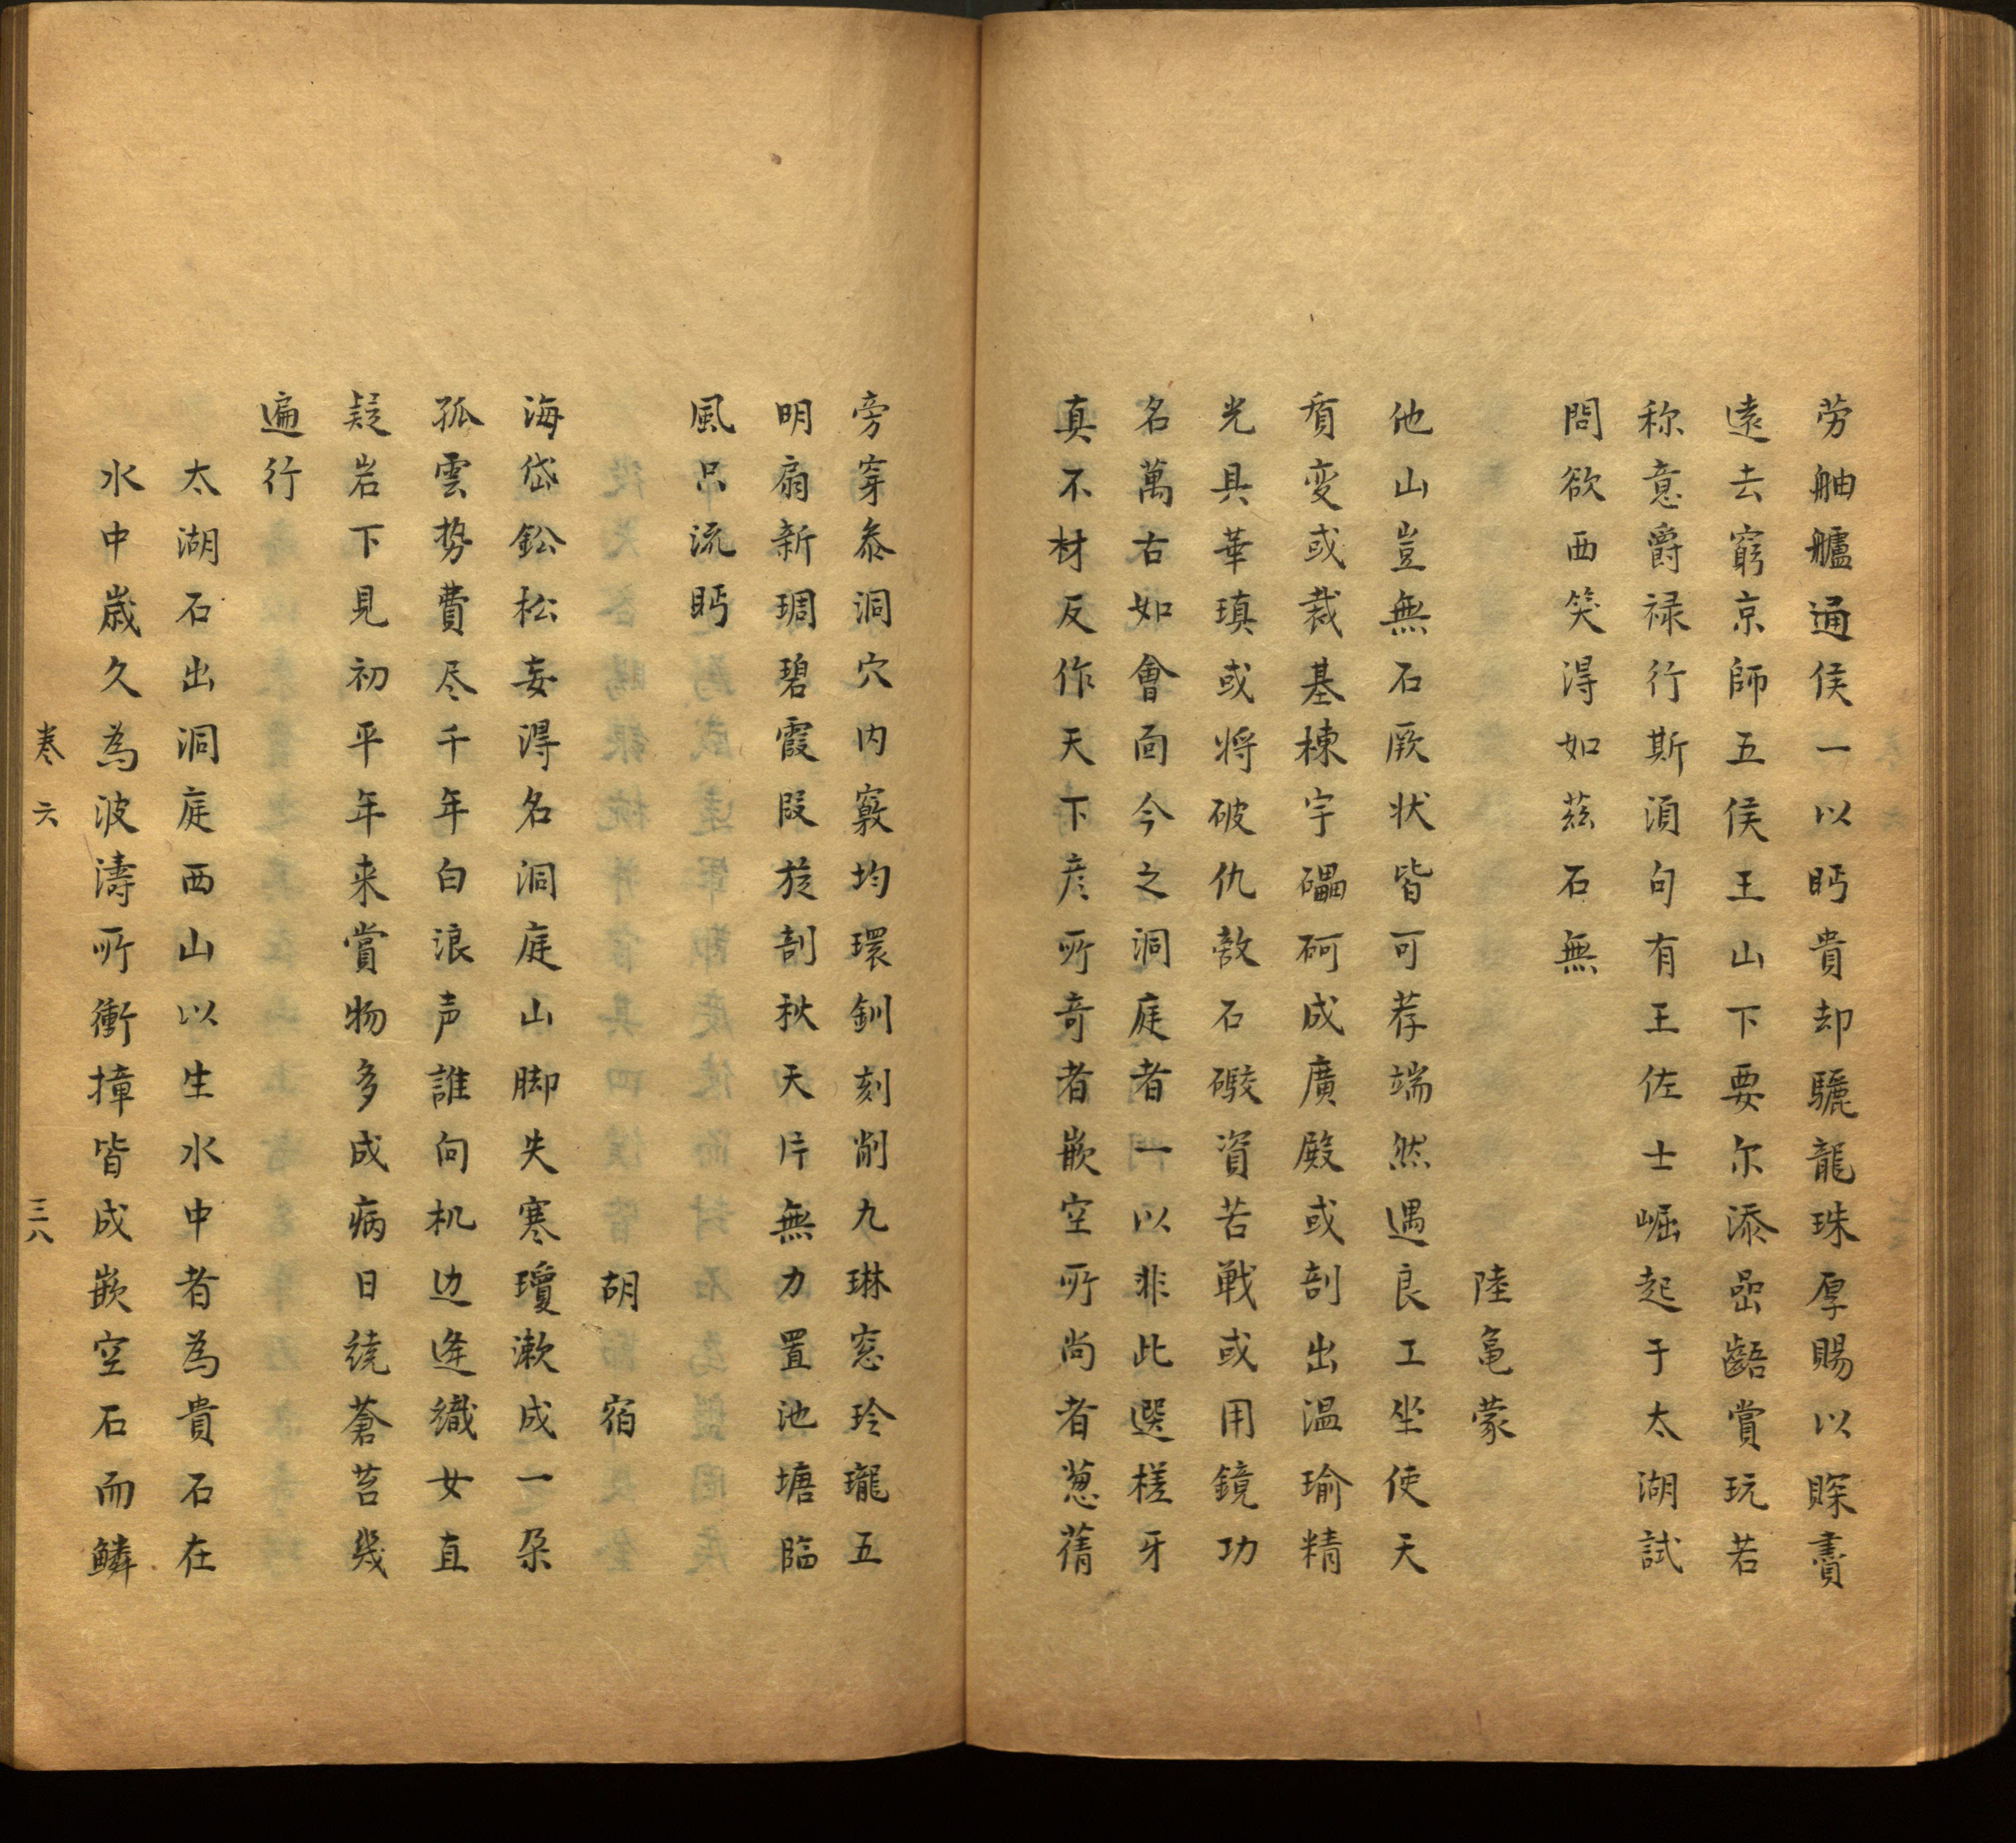 劳舳艫通侯一以眄貴却驪龍珠厚賜以賝賮
遠去窮京師五侯王山下要尔添嵒齬賞玩若
称意爵禄行斯湏句有王佐士崛起于太湖試
問欲西笑淂如茲石無
陸亀蒙
他山豈無石厥状皆可荐端然遇良工坐使天
質変或裁基棟宇礧砢成廣殿或剖出温瑜精
光具華瑱或将破仇敵石礮資苦戦或用鏡功
名萬古如會面今之洞庭者一以非此選槎牙
真不材反作天下彦所奇者嵌空所尚者葱蒨
旁穿叅洞穴内竅均環釧刻削九琳窓玲瓏五
明扇新琱碧霞段旋剖秋天片無力置池塘臨
風只流眄
胡宿
海岱鈆松妄淂名洞庭山脚失寒瓊漱成一朶
孤雲势費尽千年白浪声誰向机边逢織女直
疑岩下見初平年来賞物多成病日繞蒼苔幾
遍行
太湖石出洞庭西山以生水中者為貴石在
水中歳久為波濤所衝撞皆成嵌空石而鱗
卷六
三八